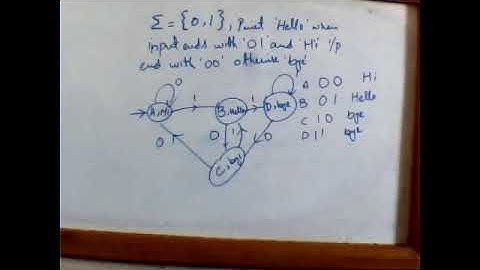 Σ = {0,1}, Print 'Hello' when
input ends with '01' and 'Hi' i/p
end with '00' otherwise 'bye'
0
A,Hi
1
B,Hello
1
D,bye
0
1
0
0
C,bye
A 00 Hi
B 01 Hello
C 10 bye
D 11 bye